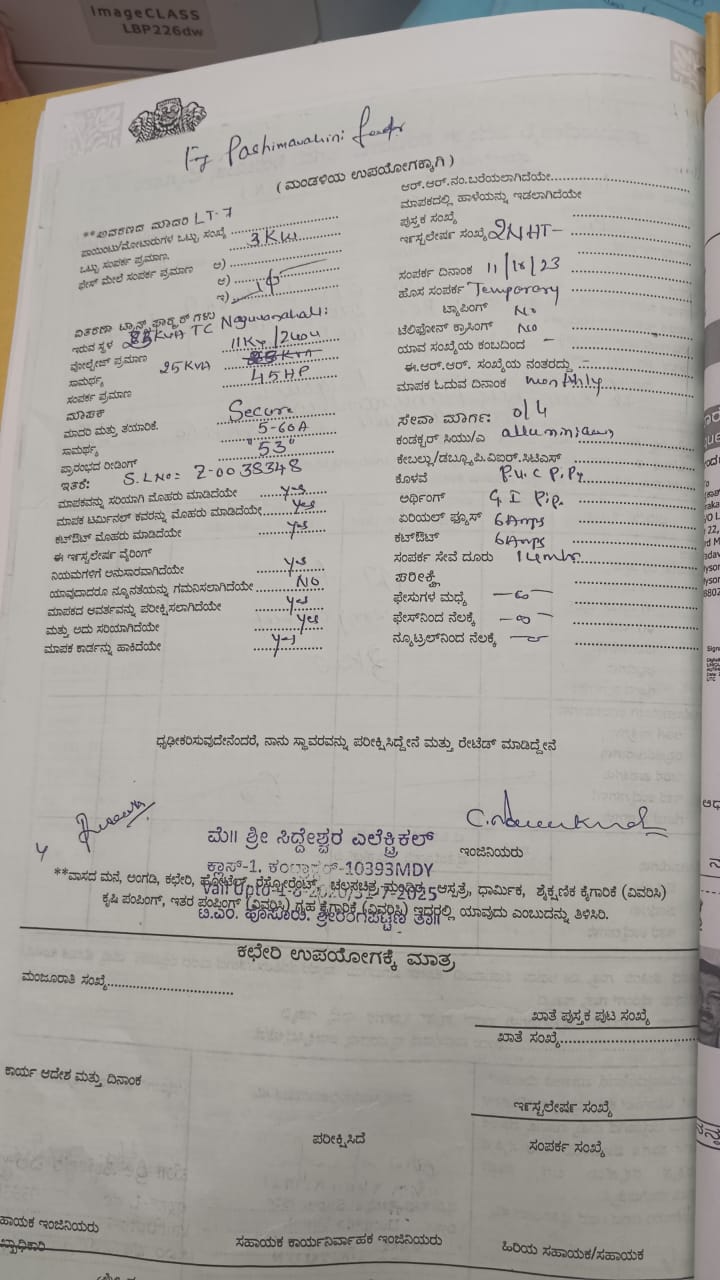 ImageCLASS
LBP226dw
Pashimavahini
( ಮಂಡಳಿಯ ಉಪಯೋಗಕ್ಕಾಗಿ )
ಮಾದರಿ LT-7
ಪಾಯಿಂಟು/ಮೋಟಾರುಗಳ ಒಟ್ಟು ಸಂಖ್ಯೆ
ಒಟ್ಟು ಸಂಪರ್ಕ ಪ್ರಮಾಣ. 3 KW
ಫೇಸ್ ಮೇಲೆ ಸಂಪರ್ಕ ಪ್ರಮಾಣ ಅ)
ಆ)
ಇ)
ವಿತರಣಾ ಟ್ರಾನ್ಸ್
ಇರುವ ಸ್ಥಳ KVA TC
ವೋಲ್ಟೇಜ್ ಪ್ರಮಾಣ 11KV
ಸಾಮರ್ಥ್ಯ 25 KVA
ಸಂಪರ್ಕ ಪ್ರಮಾಣ 45 HP
ಮಾಪಕ
ಮಾದರಿ ಮತ್ತು ತಯಾರಿಕೆ. Secure
ಸಾಮರ್ಥ್ಯ 5-60A
ಪ್ರಾರಂಭದ ರೀಡಿಂಗ್ "53"
ಇತರೆ: S.L No: 2-0038348
ಮಾಪಕವನ್ನು ಸರಿಯಾಗಿ ಮೊಹರು ಮಾಡಿದೆಯೇ Yes
ಮಾಪಕ ಟರ್ಮಿನಲ್ ಕವರನ್ನು ಮೊಹರು ಮಾಡಿದೆಯೇ Yes
ಕಟ್‌ಔಟ್ ಮೊಹರು ಮಾಡಿದೆಯೇ Yes
ಈ ಇನ್ಸ್ಟಲೇಷನ್ ವೈರಿಂಗ್
ನಿಯಮಗಳಿಗೆ ಅನುಸಾರವಾಗಿದೆಯೇ Yes
ಯಾವುದಾದರೂ ನ್ಯೂನತೆಯನ್ನು ಗಮನಿಸಲಾಗಿದೆಯೇ NO
ಮಾಪಕದ ಆವರ್ತವನ್ನು ಪರೀಕ್ಷಿಸಲಾಗಿದೆಯೇ Yes
ಮತ್ತು ಅದು ಸರಿಯಾಗಿದೆಯೇ Yes
ಮಾಪಕ ಕಾರ್ಡನ್ನು ಹಾಕಿದೆಯೇ Yes
ಆರ್.ಆರ್.ನಂ.ಬರೆಯಲಾಗಿದೆಯೇ
ಮಾಪಕದಲ್ಲಿ ಹಾಳೆಯನ್ನು ಇಡಲಾಗಿದೆಯೇ
ಪುಸ್ತಕ ಸಂಖ್ಯೆ
ಇನ್ಸ್ಟಲೇಷನ್ ಸಂಖ್ಯೆ 2NHT-
ಸಂಪರ್ಕ ದಿನಾಂಕ
ಹೊಸ ಸಂಪರ್ಕ Temporary
ಟ್ಯಾಪಿಂಗ್ No
ಟೆಲಿಫೋನ್ ಕ್ರಾಸಿಂಗ್ No
ಯಾವ ಸಂಖ್ಯೆಯ ಕಂಬದಿಂದ -
ಈ.ಆರ್.ಆರ್. ಸಂಖ್ಯೆಯ ನಂತರದ್ದು -
ಮಾಪಕ ಓದುವ ದಿನಾಂಕ monthly
ಸೇವಾ ಮಾರ್ಗ: o/h
ಕಂಡಕ್ಟರ್ ಸಿಯು/ಎ
ಕೇಬಲ್ಲು/ಡಬ್ಲ್ಯೂ.ಪಿ.ಐಆರ್.ಸಿ.ಟಿಎಸ್
ಕೊಳವೆ P.V.C Pipe
ಅರ್ಥಿಂಗ್ G I Pipe
ಏರಿಯಲ್ ಫ್ಯೂಸ್ 6Amps
ಕಟ್‌ಔಟ್ 6Amps
ಸಂಪರ್ಕ ಸೇವೆ ದೂರು
ಪರೀಕ್ಷೆ
ಫೇಸುಗಳ ಮಧ್ಯೆ
ಫೇಸ್‌ನಿಂದ ನೆಲಕ್ಕೆ
ನ್ಯೂಟ್ರಲ್‌ನಿಂದ ನೆಲಕ್ಕೆ
ಧೃಢೀಕರಿಸುವುದೇನೆಂದರೆ, ನಾನು ಸ್ಥಾವರವನ್ನು ಪರೀಕ್ಷಿಸಿದ್ದೇನೆ ಮತ್ತು ರೇಟೆಡ್ ಮಾಡಿದ್ದೇನೆ
ಮೆ॥ ಶ್ರೀ ಸಿದ್ದೇಶ್ವರ ಎಲೆಕ್ಟ್ರಿಕಲ್
ಇಂಜಿನಿಯರು
ಕ್ಲಾಸ್-1. 10393MDY
**ವಾಸದ ಮನೆ, ಅಂಗಡಿ, ಕಛೇರಿ, ಹೋಟೆಲ್, ರೆಸ್ಟೋರೆಂಟ್, ಚಲನಚಿತ್ರ ಮಂದಿರ, ಆಸ್ಪತ್ರೆ, ಧಾರ್ಮಿಕ, ಶೈಕ್ಷಣಿಕ ಕೈಗಾರಿಕೆ (ವಿವರಿಸಿ)
ಕೃಷಿ ಪಂಪಿಂಗ್, ಇತರ ಪಂಪಿಂಗ್ (ವಿವರಿಸಿ) ಗೃಹ ಕೈಗಾರಿಕೆ (ವಿವರಿಸಿ) ಇದರಲ್ಲಿ ಯಾವುದು ಎಂಬುದನ್ನು ತಿಳಿಸಿರಿ.
ಟಿ.ಎಂ. ಹೊಸೂರು, ಶ್ರೀರಂಗಪಟ್ಟಣ ತಾ॥
ಕಛೇರಿ ಉಪಯೋಗಕ್ಕೆ ಮಾತ್ರ
ಮಂಜೂರಾತಿ ಸಂಖ್ಯೆ
ಖಾತೆ ಪುಸ್ತಕ ಪುಟ ಸಂಖ್ಯೆ
ಖಾತೆ ಸಂಖ್ಯೆ
ಕಾರ್ಯ ಆದೇಶ ಮತ್ತು ದಿನಾಂಕ
ಇನ್ಸ್ಟಲೇಷನ್ ಸಂಖ್ಯೆ
ಪರೀಕ್ಷಿಸಿದೆ
ಸಂಪರ್ಕ ಸಂಖ್ಯೆ
ಸಹಾಯಕ ಇಂಜಿನಿಯರು
ಸಹಾಯಕ ಕಾರ್ಯನಿರ್ವಾಹಕ ಇಂಜಿನಿಯರು
ಹಿರಿಯ ಸಹಾಯಕ/ಸಹಾಯಕ